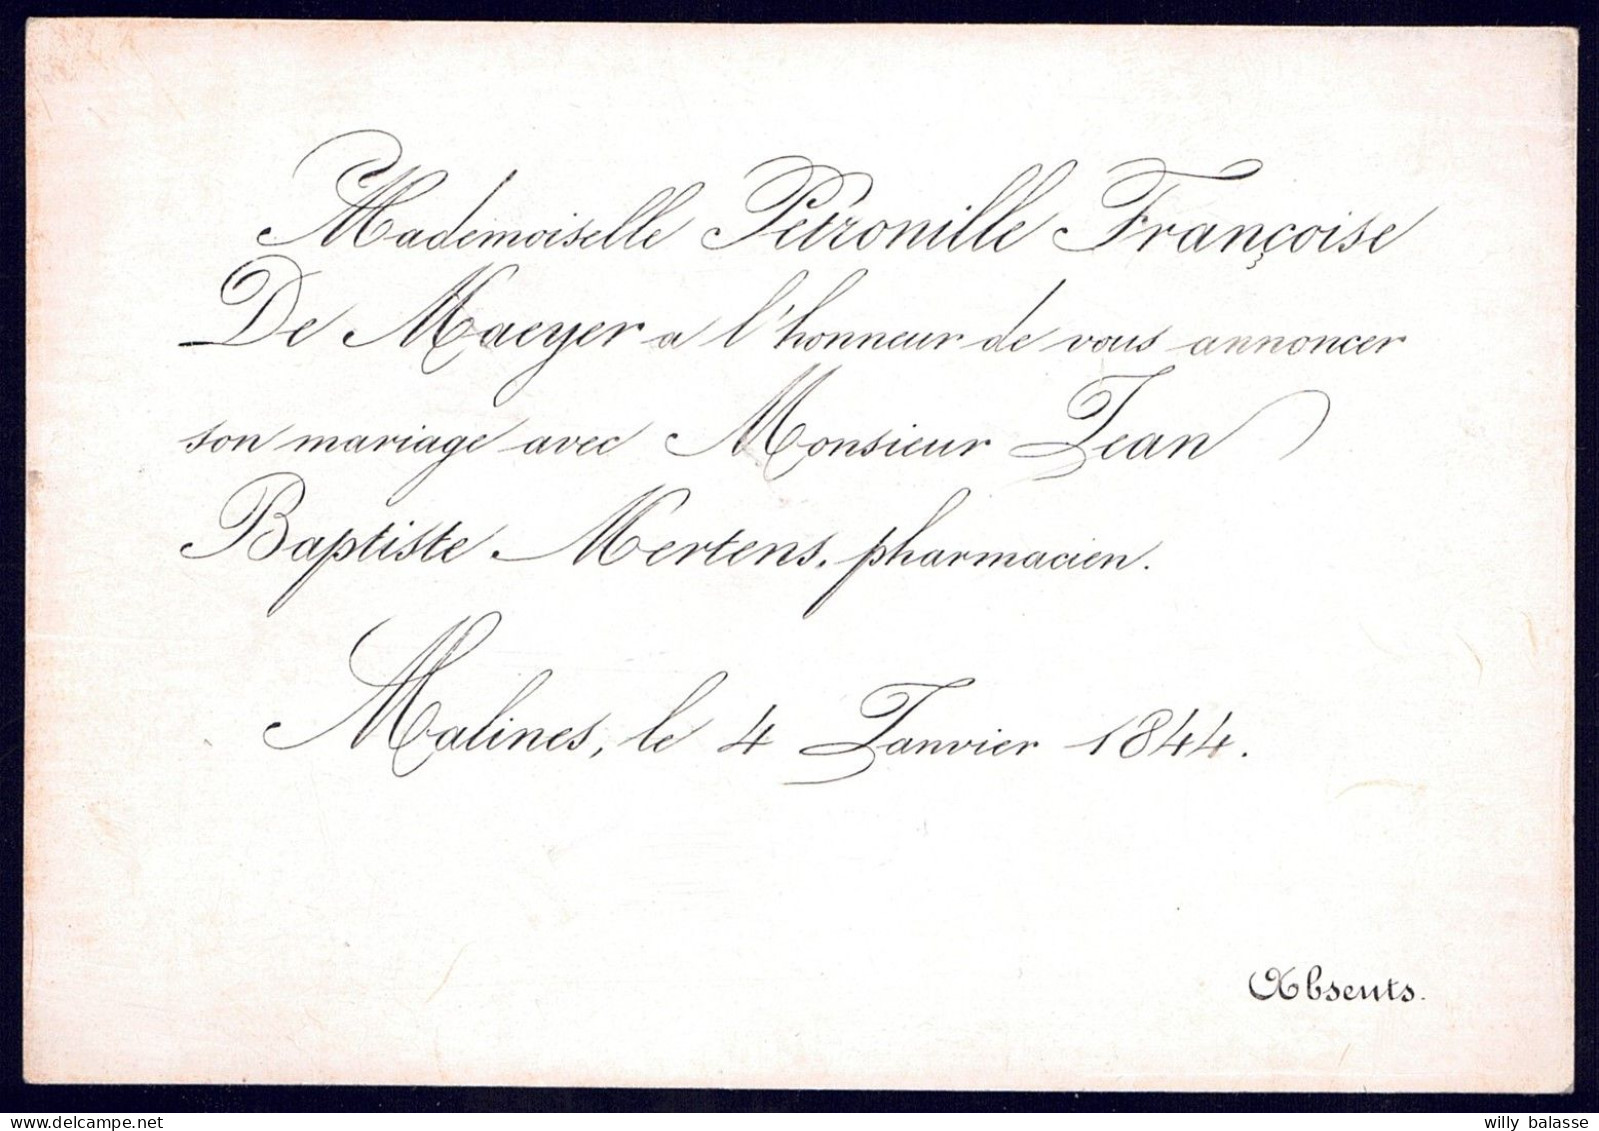 Mademoiselle Pétronille Françoise
De Maeyer a l'honneur de vous annoncer
son mariage avec Monsieur Jean
Baptiste Mertens, pharmacien.
Malines, le 4 Janvier 1844.
Absents.
willy balasse